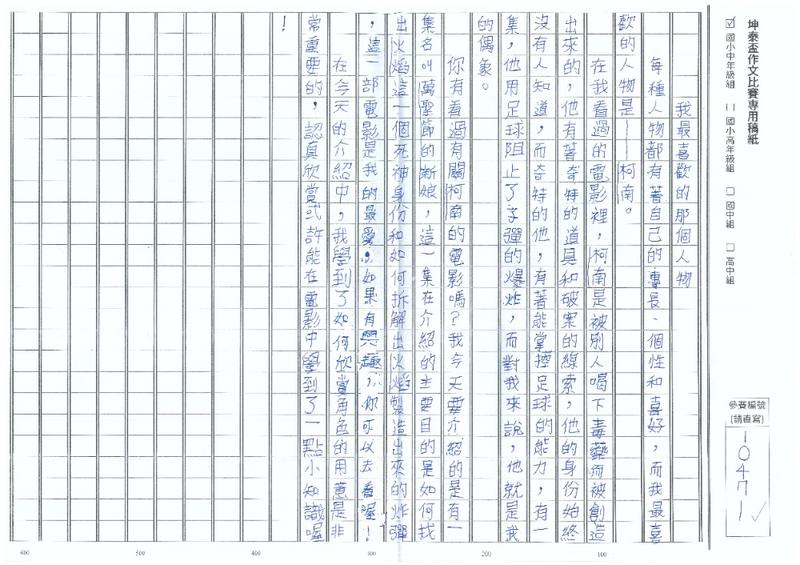 坤泰盃作文比賽專用稿紙
☑ 國小中年級組 □ 國小高年級組 □ 國中組 □ 高中組
參賽編號
(請直寫)
10471
我最喜歡的那個人物
每種人物都有著自己的專長、個性和喜好，而我最喜
歡的人物是——柯南。
在我看過的電影裡，柯南是被別人喝下毒藥而被創造
出來的，他有著奇特的道具和破案的線索，他的身份始終
沒有人知道，而奇特的他，有著能掌控足球的能力，有一
集，他用足球阻止了子彈的爆炸，而對我來說，他就是我
的偶象。
你有看過有關柯南的電影嗎？我今天要介紹的是有一
集名叫萬聖節的新娘，這一集在介紹的主要目的是如何找
出火焰這一個死神身份和如何拆解出火焰製造出來的炸彈
，這一部電影是我的最愛，如果有興趣，你可以去看喔！
在今天的介紹中，我學到了如何欣賞角色的用意是非
常重要的，認真欣賞或許能在電影中學到了一點小知識喔
！
100
200
300
400
500
600